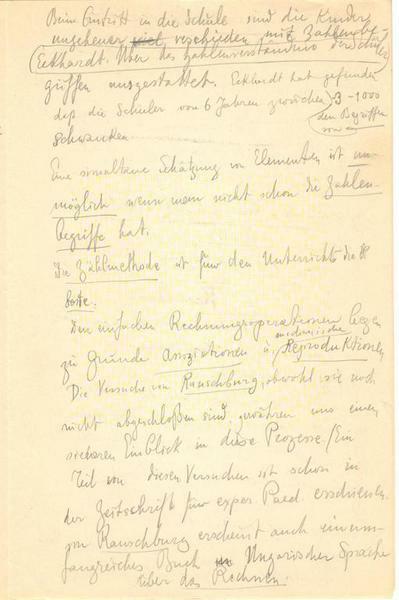 Beim Eintritt in die Schule sind die Kinder
ungeheuer viel verschieden mit Zahlenbe-
Eckhardt. Über das Zahlenverständnis der Schüler
griffen ausgestattet. Eckhardt hat gefunden
daß die Schüler von 6 Jahren zwischen 3-1000
den Begriffen
von
Schwanken
Eine simultane Schätzung von Elementen ist un-
möglich wenn man nicht schon die Zahlen-
begriffe hat.
Die Zählmethode ist für den Unterricht die
beste.
Den einfachen Rechnungsoperationen liegen
mechanische
zu Grunde Assoziationen u. Reproduktionen
Die Versuche von Ranschburg, obwohl sie noch
nicht abgeschloßen sind, gewähren uns einen
sicheren Einblick in diese Prozesse. (Ein
Teil von diesen Versuchen ist schon in
der Zeitschrift für exper. Paed. erschienen.
von Ranschburg erscheint auch ein um-
fangreiches Buch in Ungarischer Sprache
über das Rechnen.